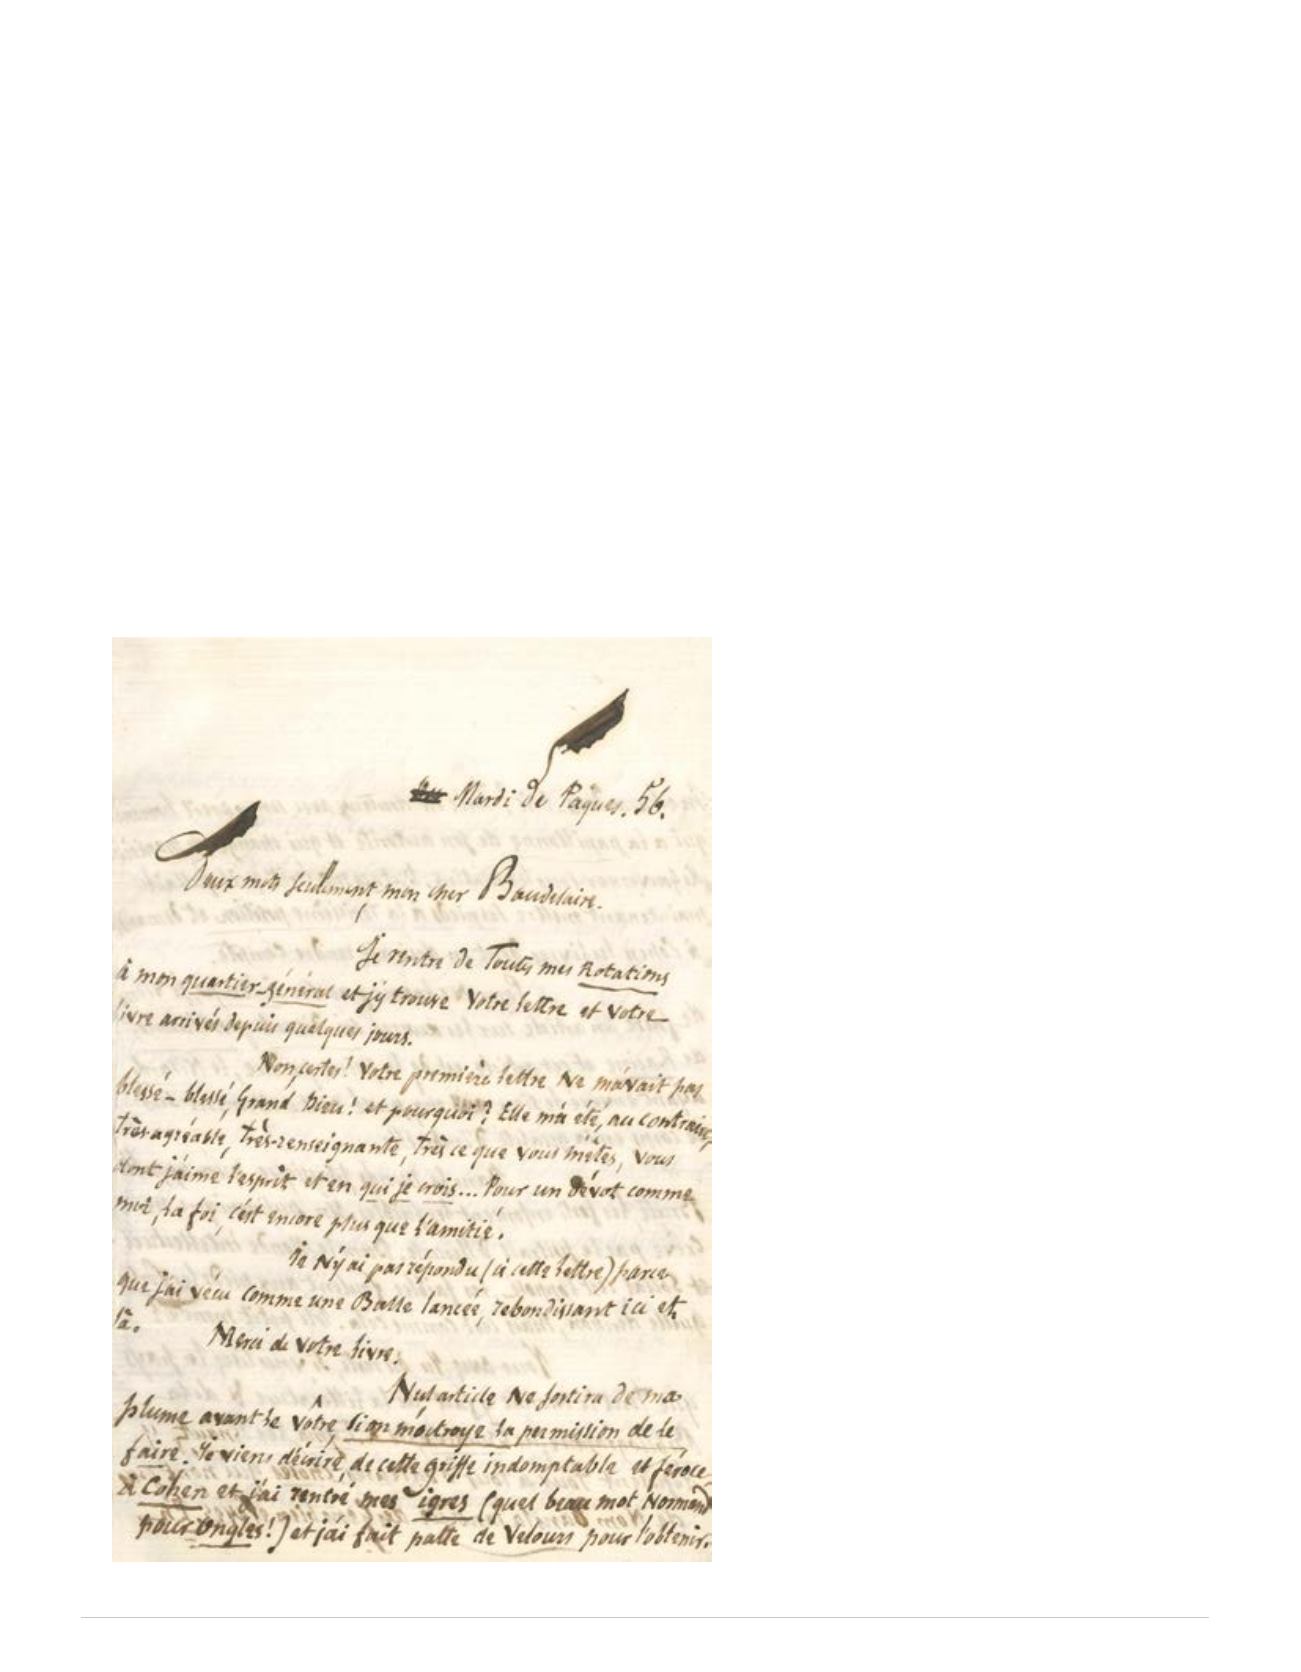 Mardi de Pâques. 56.
Deux mots seulement, mon cher Baudelaire.
Je rentre de Toutes mes Rotations
à mon quartier-général et j'y trouve Votre lettre et Votre
livre arrivés depuis quelques jours.
Non, certes! Votre première lettre Ne m'avait pas
blessé – blessé, Grand Dieu! et pourquoi? Elle m'a été, au contraire,
très-agréable, Très-renseignante, Très ce que vous m'êtes, Vous
dont j'aime l'esprit et en qui je crois... Pour un dévot comme
moi, la foi, c'est encore plus que l'amitié.
Je N'y ai pas répondu (à cette lettre) parce
que j'ai vécu comme une Balle lancée, rebondissant ici et
là.
Merci de Votre livre.
Nul article Ne sortira de ma
plume avant le Vôtre, si on m'octroye la permission de le
faire. Je viens d'écrire, de cette griffe indomptable et féroce
à Cohen et j'ai rentré mes igres (quel beau mot Normand
pour ongles!) et j'ai fait patte de Velours pour l'obtenir.